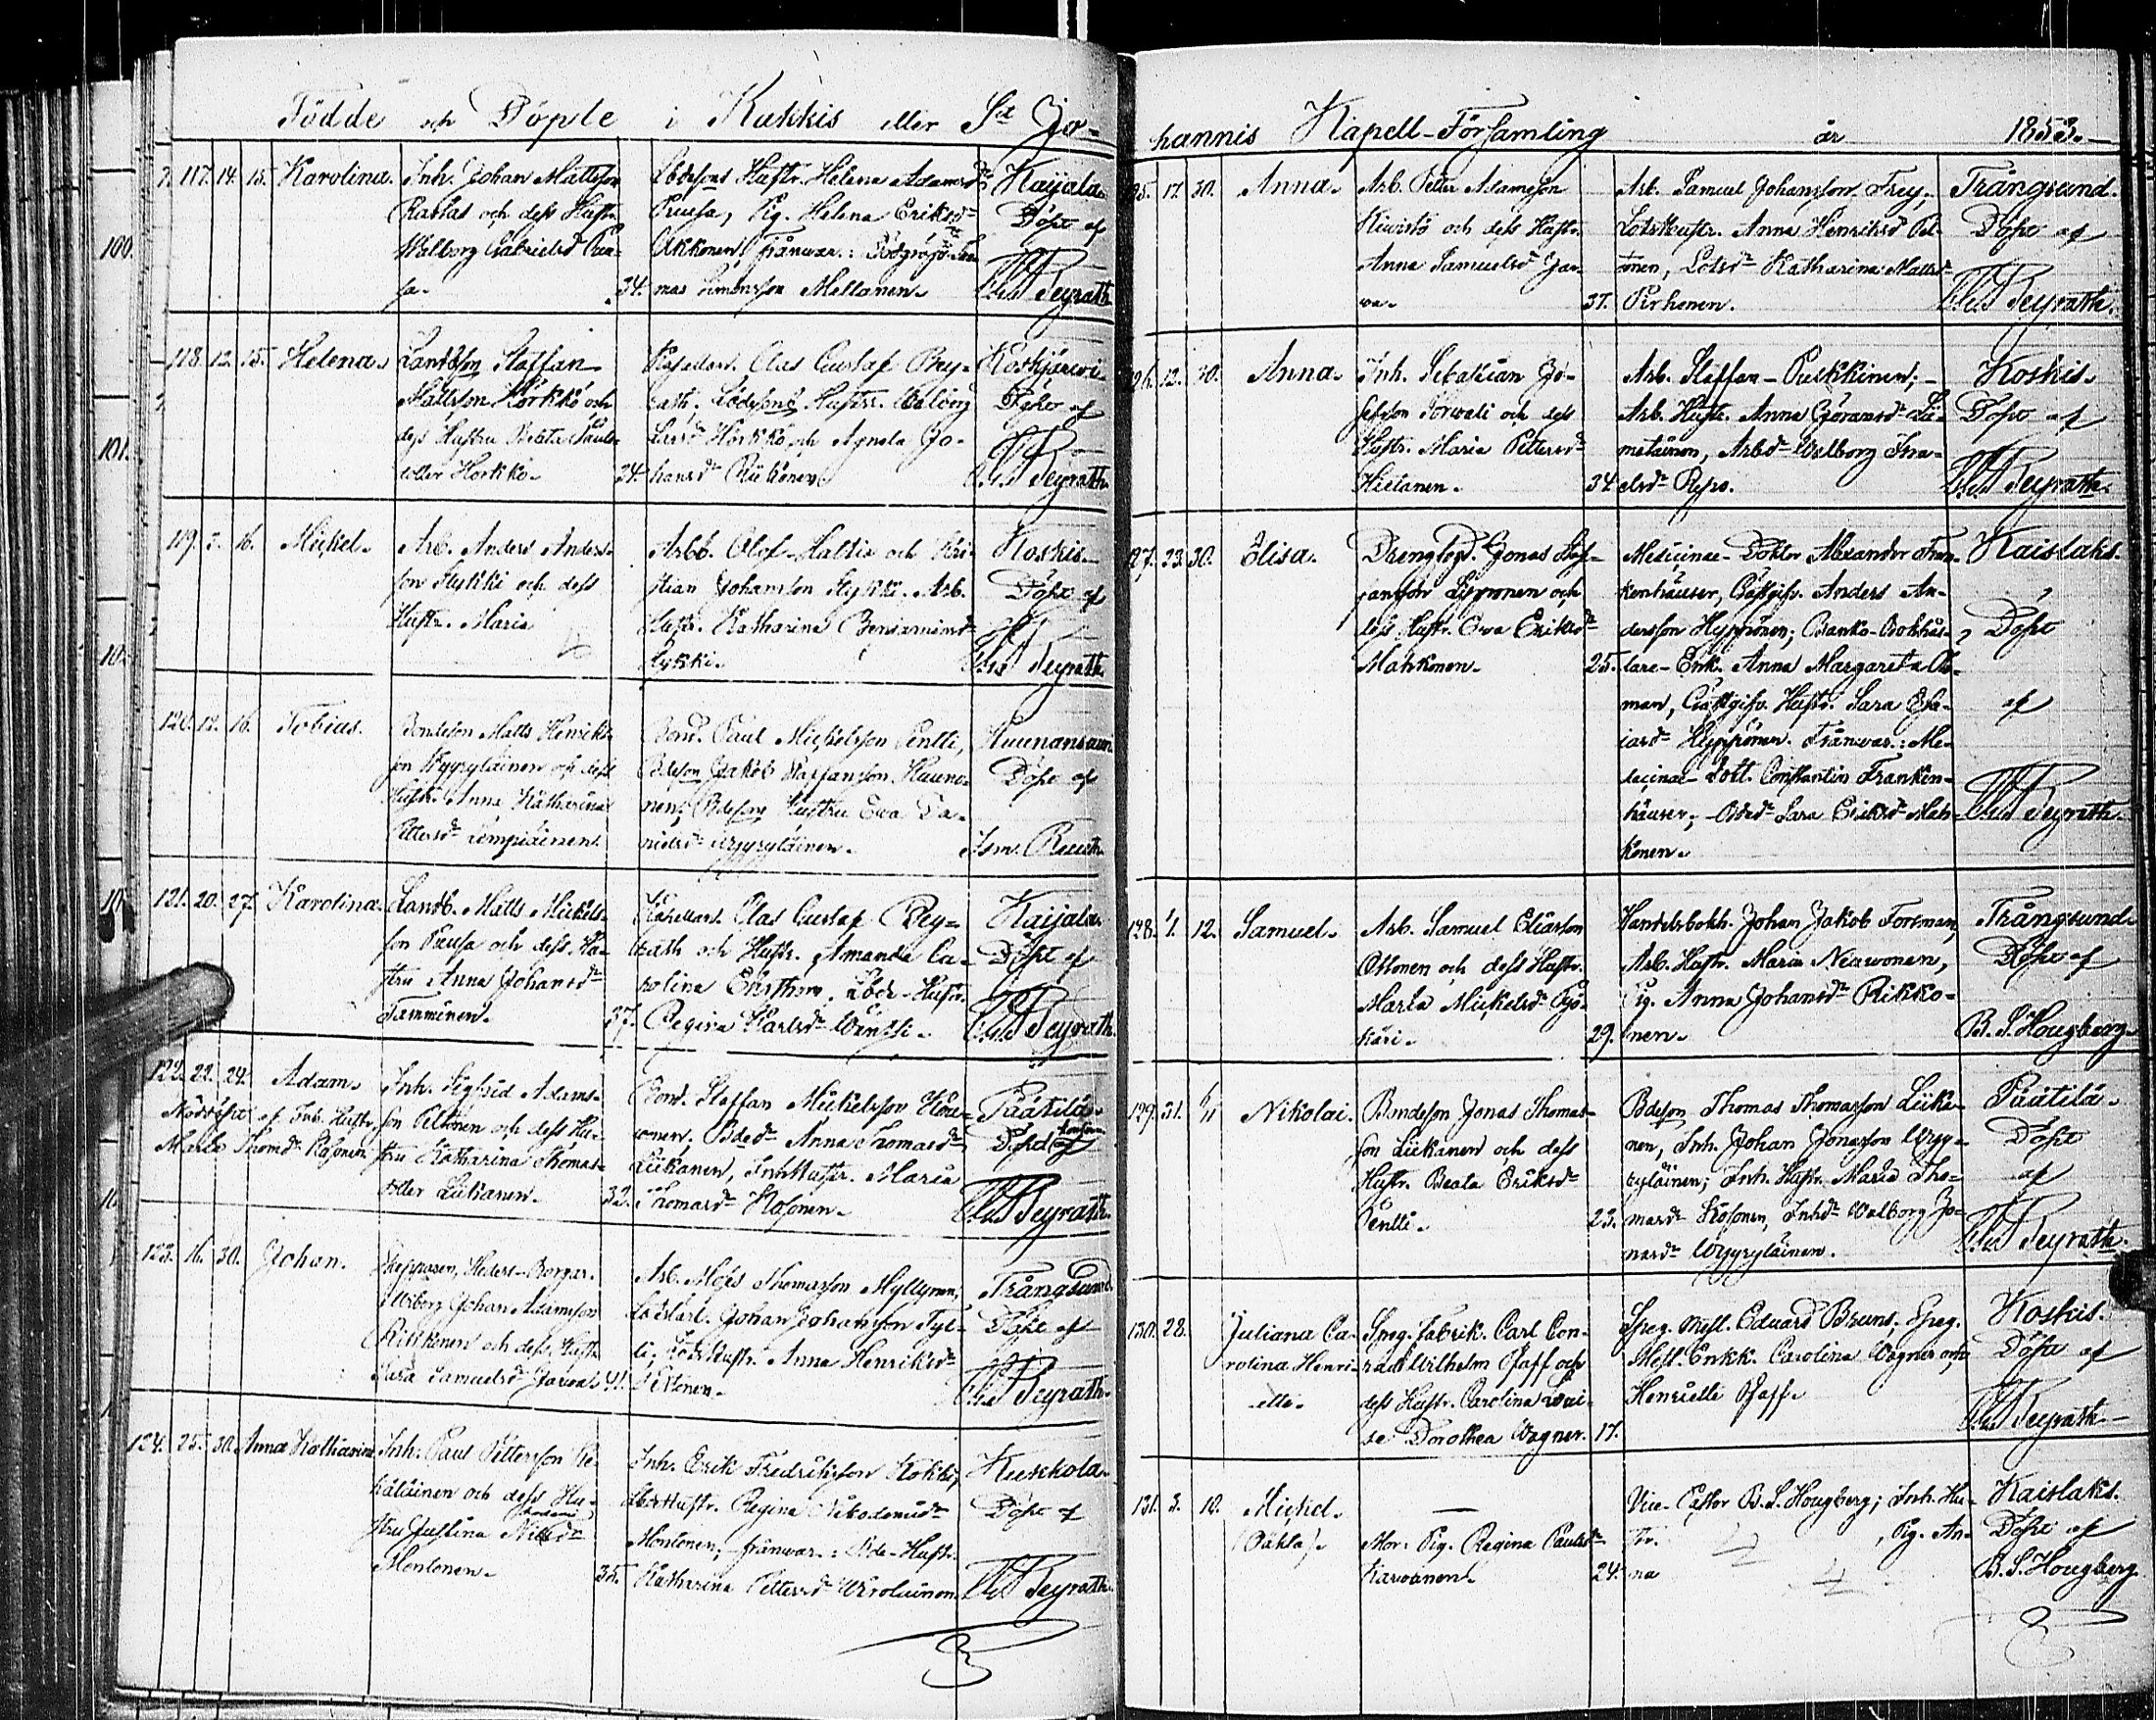 Födde och Döpte i Kukkis eller S:t Jo-
7. 117. 14. 15. Karolina. Inh. Johan Mattsson
Rastas och dess Hustr.
Walborg Gabrielsd:r Puu-
sa. 34.
Lbdesons Hustr. Helena Adamsd:r
Puusa, Pig. Helena Eriksd:r
Ukkonen, frånwar.: Tho-
mas Simonsson Mattanen.
Kaijala.
Döpt af
Cl. G. Reyrath.
118. 12. 15. Helena. Landbson Staffan
Mattsson Hörkkö och
dess Hustru Beata Pauls-
dotter Hörkkö. 34.
Kapellan. Clas Gustaf Rey-
rath. Lbdesons Hustr. Walborg
Larsd:r Hörkkö och Agneta Jo-
hansd:r
Koskijärwi.
Döpt af
Cl. G. Reyrath.
119. 7. 16. Mickel. Arb. Anders Anders-
son Hytkki och dess
Hustr. Maria
Arbb. Olof Mattis och Kri-
stian Johansson Arb.
Hustr. Katharina Benjaminsd:r
Koskis.
Döpt af
Cl. G. Reyrath.
120. 12. 16. Tobias. Bondeson Matts Henriks-
son Wyyryläinen och dess
Hustr. Anna Katharina
Pettersd:r Lempiäinen.
Bond. Paul Mickelsson Pentti,
Bdeson Jakob Staffansson Huuna-
nen; Bdeson Hustru Ewa Da-
nielsd:r Wyyryläinen.
Huunansaari.
Döpt af
Ism. Reuth.
121. 20. 27. Karolina. Landb. Matts Mickels-
son Puusa och dess Hu-
stru Anna Johansd:r
Tamminen. 37.
Kapellan. Clas Gustaf Rey-
rath och Hustr. Amanda Ca-
rolina Enström. Lbde-Hustr.
Regina Karlsd:r Wentti.
Kaijala.
Döpt af
Cl. G. Reyrath.
122. 22. 24. Adam. Inh. Sigfrid Adams-
Nöddöpt af Inh. Hustr. son Peltonen och dess Hu-
Maria Thomd:r Kosonen. stru Katharina Thomas-
dotter Liikanen. 32.
Bond. Staffan Mickelsson
Bded:r Anna Thomasd:r
Liikanen, Inh Hustr. Maria
Thomasd:r Kosonen.
Päätilä.
Cl. G. Reyrath.
123. 16. 30. Johan. Skepparen, Hederb-Borgar.
i Wiborg Johan Adamsson
och dess Hustr.
Sara Samuelsd:r Jarwa. 41.
Arb. Moses Thomasson Myllynen,
Johan Johansson
Lots Hustr. Anna Henriksd:r
Peltonen.
Trångsund.
Döpt af
Cl. G. Reyrath.
124. 25. 30. Anna Katharina. Inh. Paul Pettersson
och dess Hu-
stru Justina
Montonen. 35.
Inh. Erik Fredriksson Kokki,
Hustr. Regina Nikodemusd:r
Montonen; frånwar.: Bde-Hustr.
Katharina Pettersd:r Wirolainen.
Kukkola.
Döpt af
Cl. G. Reyrath.
hannis Kapell-Församling år 1853.
125. 17. 30. Anna. Arb. Petter Adamsson
Kiwistö och dess Hustr.
Anna Samuelsd:r Jar-
wa. 31.
Arb. Samuel Johansson Frey,
Lots Hustr. Anna Henriksd:r Pel-
tonen, Lotsd:r Katharina Mattsd:r
Pirhonen.
Trångsund.
Döpt af
Cl. G. Reyrath.
126. 12. 30. Anna. Inh. Sebastian Jo-
sefsson Torwati och dess
Hustr. Maria Pettersd:r
Hietanen. 34.
Arb. Staffan Puukkinen;
Arb. Hustr. Anna Göransd:r Lä-
metäinen, Arbd:r Walborg Isra-
elsd:r Repo.
Koskis.
Döpt af
Cl. G. Reyrath.
127. 23. 30. Elisa. Jonas Staf-
fansson Lyyronen och
dess Hustr. Ewa Eriksd:r
Mahkonen. 25.
Medicinae-Doktor Alexander Fran-
kenhäuser, Gästgifv. Anders An-
dersson Hyppönen; Banko-Bokhål-
lare-Enk. Anna Margareta
man, Gästgifv. Hustr. Sara Esa-
iasd:r Hyppönen. Frånwar.: Me-
dicinae-Dokt. Constantin Franken-
häuser, Bded:r Sara Eriksd:r Mah-
konen.
Kaislaks.
Döpt
af
Cl. G. Reyrath.
128. 1. 12. Samuel. Arb. Samuel Eliasson
Ottonen och dess Hustr.
Maria Mickelsd:r Pyö-
käri. 29.
Handelsbokh. Johan Jakob Forsman,
Arb. Hustr. Maria Neuwonen,
Pig. Anna Johansd:r Rikko-
nen.
Trångsund.
Döpt af
B. S. Hougberg.
129. 31. 6/11 Nikolai. Bondeson Jonas Thomas-
son Liikanen och dess
Hustr. Beata Eriksd:r
Pentti. 23.
Bdeson Thomas Thomasson Liika-
nen, Inh. Johan Jonasson Wyy-
ryläinen; Inh. Hustr. Maria Tho-
masd:r Kosonen, Inhd:r Walborg Jo-
nasd:r Wyyryläinen.
Päätilä.
Döpt
af
Cl. G. Reyrath.
130. 28. Juliana Ca-
rolina Henri-
ette.
Speg. Fabrik. Carl Con-
rad Wilhelm Pfaff och
dess Hustr. Carolina Loui-
se Dorothea Wagner. 17.
Speg. Mest. Eduard Bruns, Speg.
Mest. Enkk. Carolina Wagner och
Henriette Pfaff.
Koskis.
Döpt af
Cl. G. Reyrath.
131. 3. 10. Mickel.
(Oäkta).
—
Mor: Pig. Regina Paulsd:r
Karwanen. 24.
Vice-Pastor B. S. Hougberg; Inh. Hu-
str. , Pig. An-
na
Kaislaks.
Döpt af
B. S. Hougberg